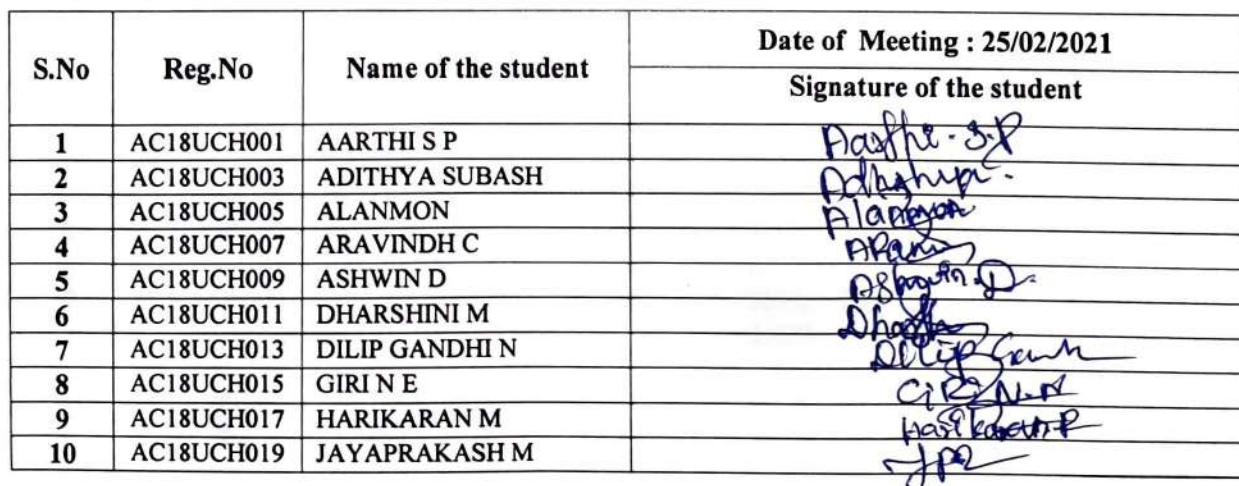 S.No Reg.No Name of the student Date of Meeting : 25/02/2021
Signature of the student
1 AC18UCH001 AARTHI S P Aarthi . S.P
2 AC18UCH003 ADITHYA SUBASH
3 AC18UCH005 ALANMON Alanmon
4 AC18UCH007 ARAVINDH C
5 AC18UCH009 ASHWIN D Ashwin.D.
6 AC18UCH011 DHARSHINI M
7 AC18UCH013 DILIP GANDHI N Dilip
8 AC18UCH015 GIRI N E
9 AC18UCH017 HARIKARAN M
10 AC18UCH019 JAYAPRAKASH M